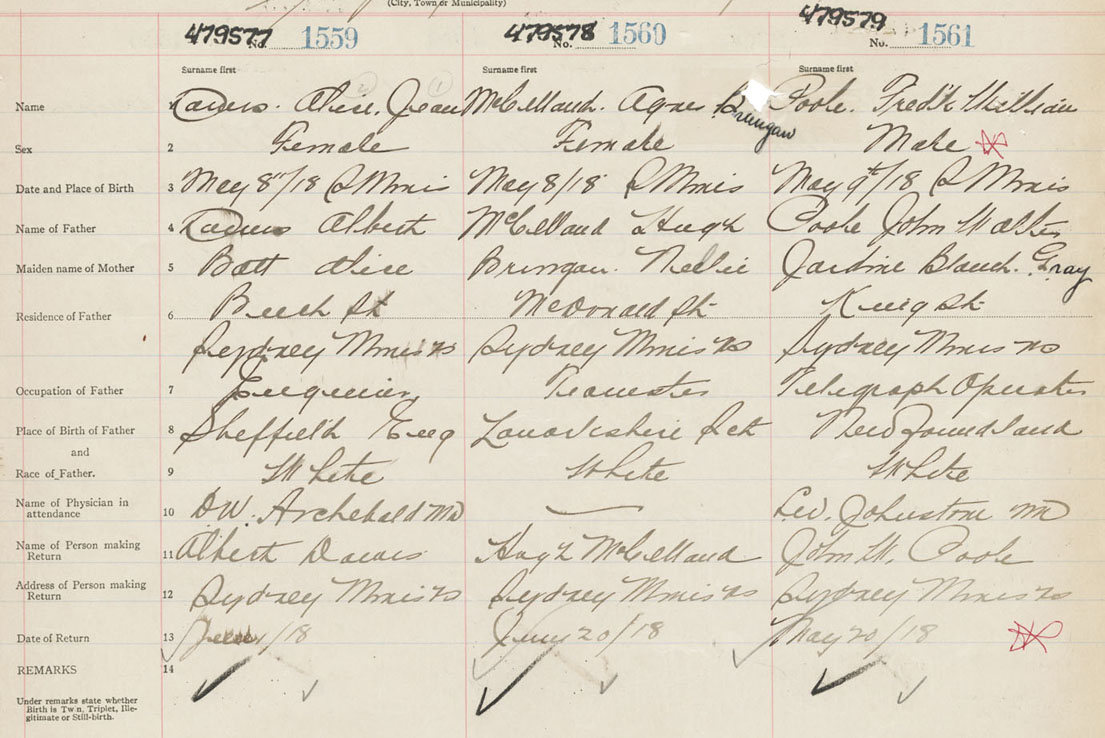 (City, Town or Municipality)
479577 No. 1559 479578 No. 1560 479579 No. 1561
Surname first Surname first Surname first
Name 1 Davies. Alice. Jean McClelland. Agnes B. Brringan Poole. Fredk William
Sex 2 Female Female Male
Date and Place of Birth 3 May 8"/18 S Mines May 8/18 S Mines May 9th/18 S Mines
Name of Father 4 Davies Albert McClelland Hugh Poole John Walter
Maiden name of Mother 5 Batt Alice Nellie Jardine Blanch. Gray
Residence of Father 6 Beech St McDonald St King St
Sydney Mines NS Sydney Mines NS Sydney Mines NS
Occupation of Father 7 Engineer Teamster Telegraph Operator
Place of Birth of Father 8 Sheffield Eng Lanarkshire Sct Newfoundland
and
Race of Father. 9 White White White
Name of Physician in
attendance 10 DW. Archebald MD Johnstone MD
Name of Person making
Return 11 Albert Davies Hugh McClelland John W. Poole
Address of Person making
Return 12 Sydney Mines NS Sydney Mines NS Sydney Mines NS
Date of Return 13 /18 June 20/18 May 20/18
REMARKS 14
Under remarks state whether
Birth is Twin, Triplet, Ille-
gitimate or Still-birth.